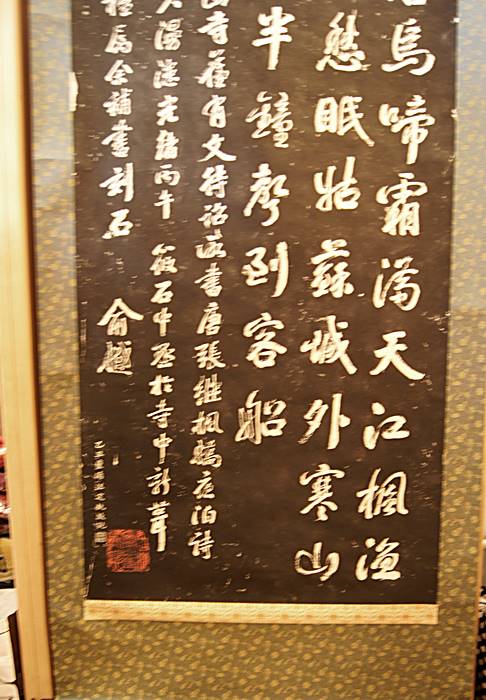 烏啼霜滿天江楓漁
愁眠姑蘇城外寒山
半鐘聲到客船
山寺舊有文待詔所書唐張繼楓橋夜泊詩
久漫漶光緒丙午 筱石中丞於寺中新葺
楹屬余補書刻石 俞樾